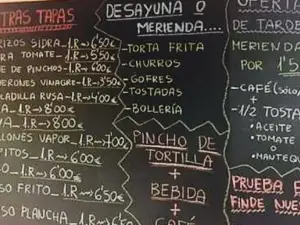 TRAS TAPAS
RIZOS SIDRA 1.R 6'50€
RA TOMATE 1.R 5'50€
E DE PINCHOS 1.R 6'00€
ERONES VINAGRE 1.R 3'50€
LADILLA RUSA 1.R 4'00€
1.R 8'00€
1.R 8'00€
LONES VAPOR 1.R 7'00€
PITOS 1.R 6'00€
SO 1.R 6'00€
SO FRITO 1.R 6'50€
SO PLANCHA 1.R 6'50€
DESAYUNA O
MERIENDA....
-TORTA FRITA
-CHURROS
-GOFRES
-TOSTADAS
-BOLLERÍA
PINCHO DE
TORTILLA
+
BEBIDA
+
CAFÉ
OFERTA
DE TARDE
MERIENDA
POR 1'5
-CAFÉ (SÓLO
+
-1/2 TOSTA
• ACEITE
• TOMATE
O
• MANTEQ
PRUEBA
FINDE NUES